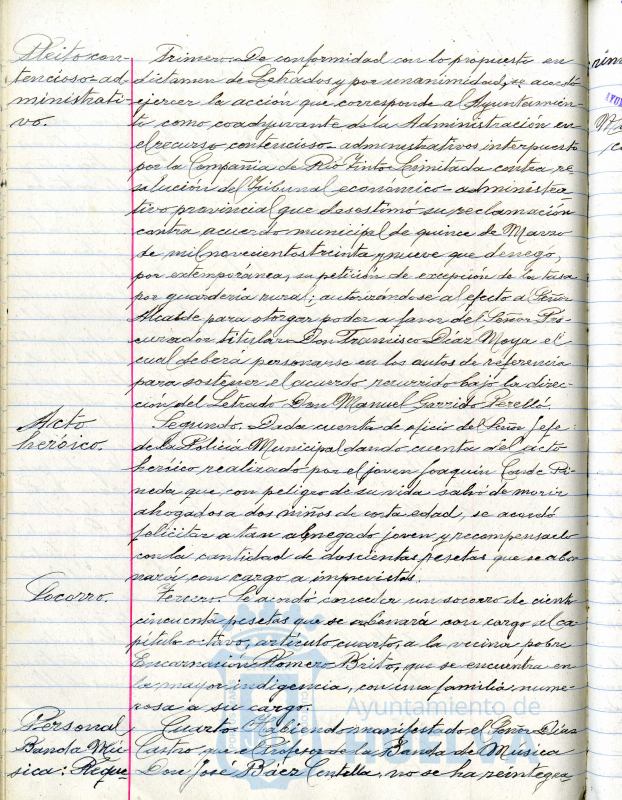 Pleito con-
tencioso-ad
ministrati-
vo.
Trimero. De conformidad con lo propuesto en
dictamen de Letrados y por unanimidad, se acordó
ejercer la acción que corresponde al Ayuntamien-
to como coadyuvante de la Administración en
el recurso contencioso-administrativo interpuesto
por la Compañia de Rio Tinto Limitada contra re
solución del Tribunal económico-administra-
tivo provincial que desestimó su reclamación
contra acuerdo municipal de quince de Marzo
de mil novecientos treinta y nueve que denegó,
por extemporánea, su petición de excepción de la tasa
por guarderia rural; autorizándose al efecto al Señor
Alcalde para otorgar poder a favor del Señor Pro-
curador titular Don Francisco Díaz Moya el
cual deberá personarse en los autos de referencia
para sostener el acuerdo recurrido bajo la direc-
ción del Letrado Don Manuel Garrido Perelló.
Acto
heróico.
Segundo. Dada cuenta de oficio del Señor Jefe
de la Policia Municipal dando cuenta del acto
heróico realizado por el joven Joaquin Conde Pi-
neda que, con peligro de su vida salvó de morir
ahogados a dos niños de corta edad, se acordó
felicitar a tan abnegado joven y recompensarlo
con la cantidad de doscientas pesetas que se abo-
nará con cargo a imprevistos.
Socorro.
Tercero. Se acordó conceder un socorro de ciento
cincuenta pesetas que se abonará con cargo al ca-
pitulo octavo, articulo cuarto, a la vecina pobre
Encarnación Romero Brito, que se encuentra en
la mayor indigencia, con una familia nume-
rosa a su cargo.
Personal
Banda Mú
sica: Reque
Cuarto. Habiendo manifestado el Señor Días
Castro que el Profesor de la Banda de Música
Don José Báez Centella, no se ha reintegra-
Ayuntamiento de